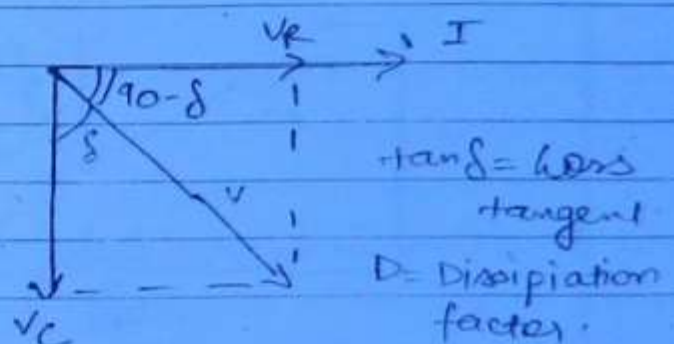 VR I
90-δ
δ
tanδ = Loss
tangent
V
D = Dissipiation
factor.
VC